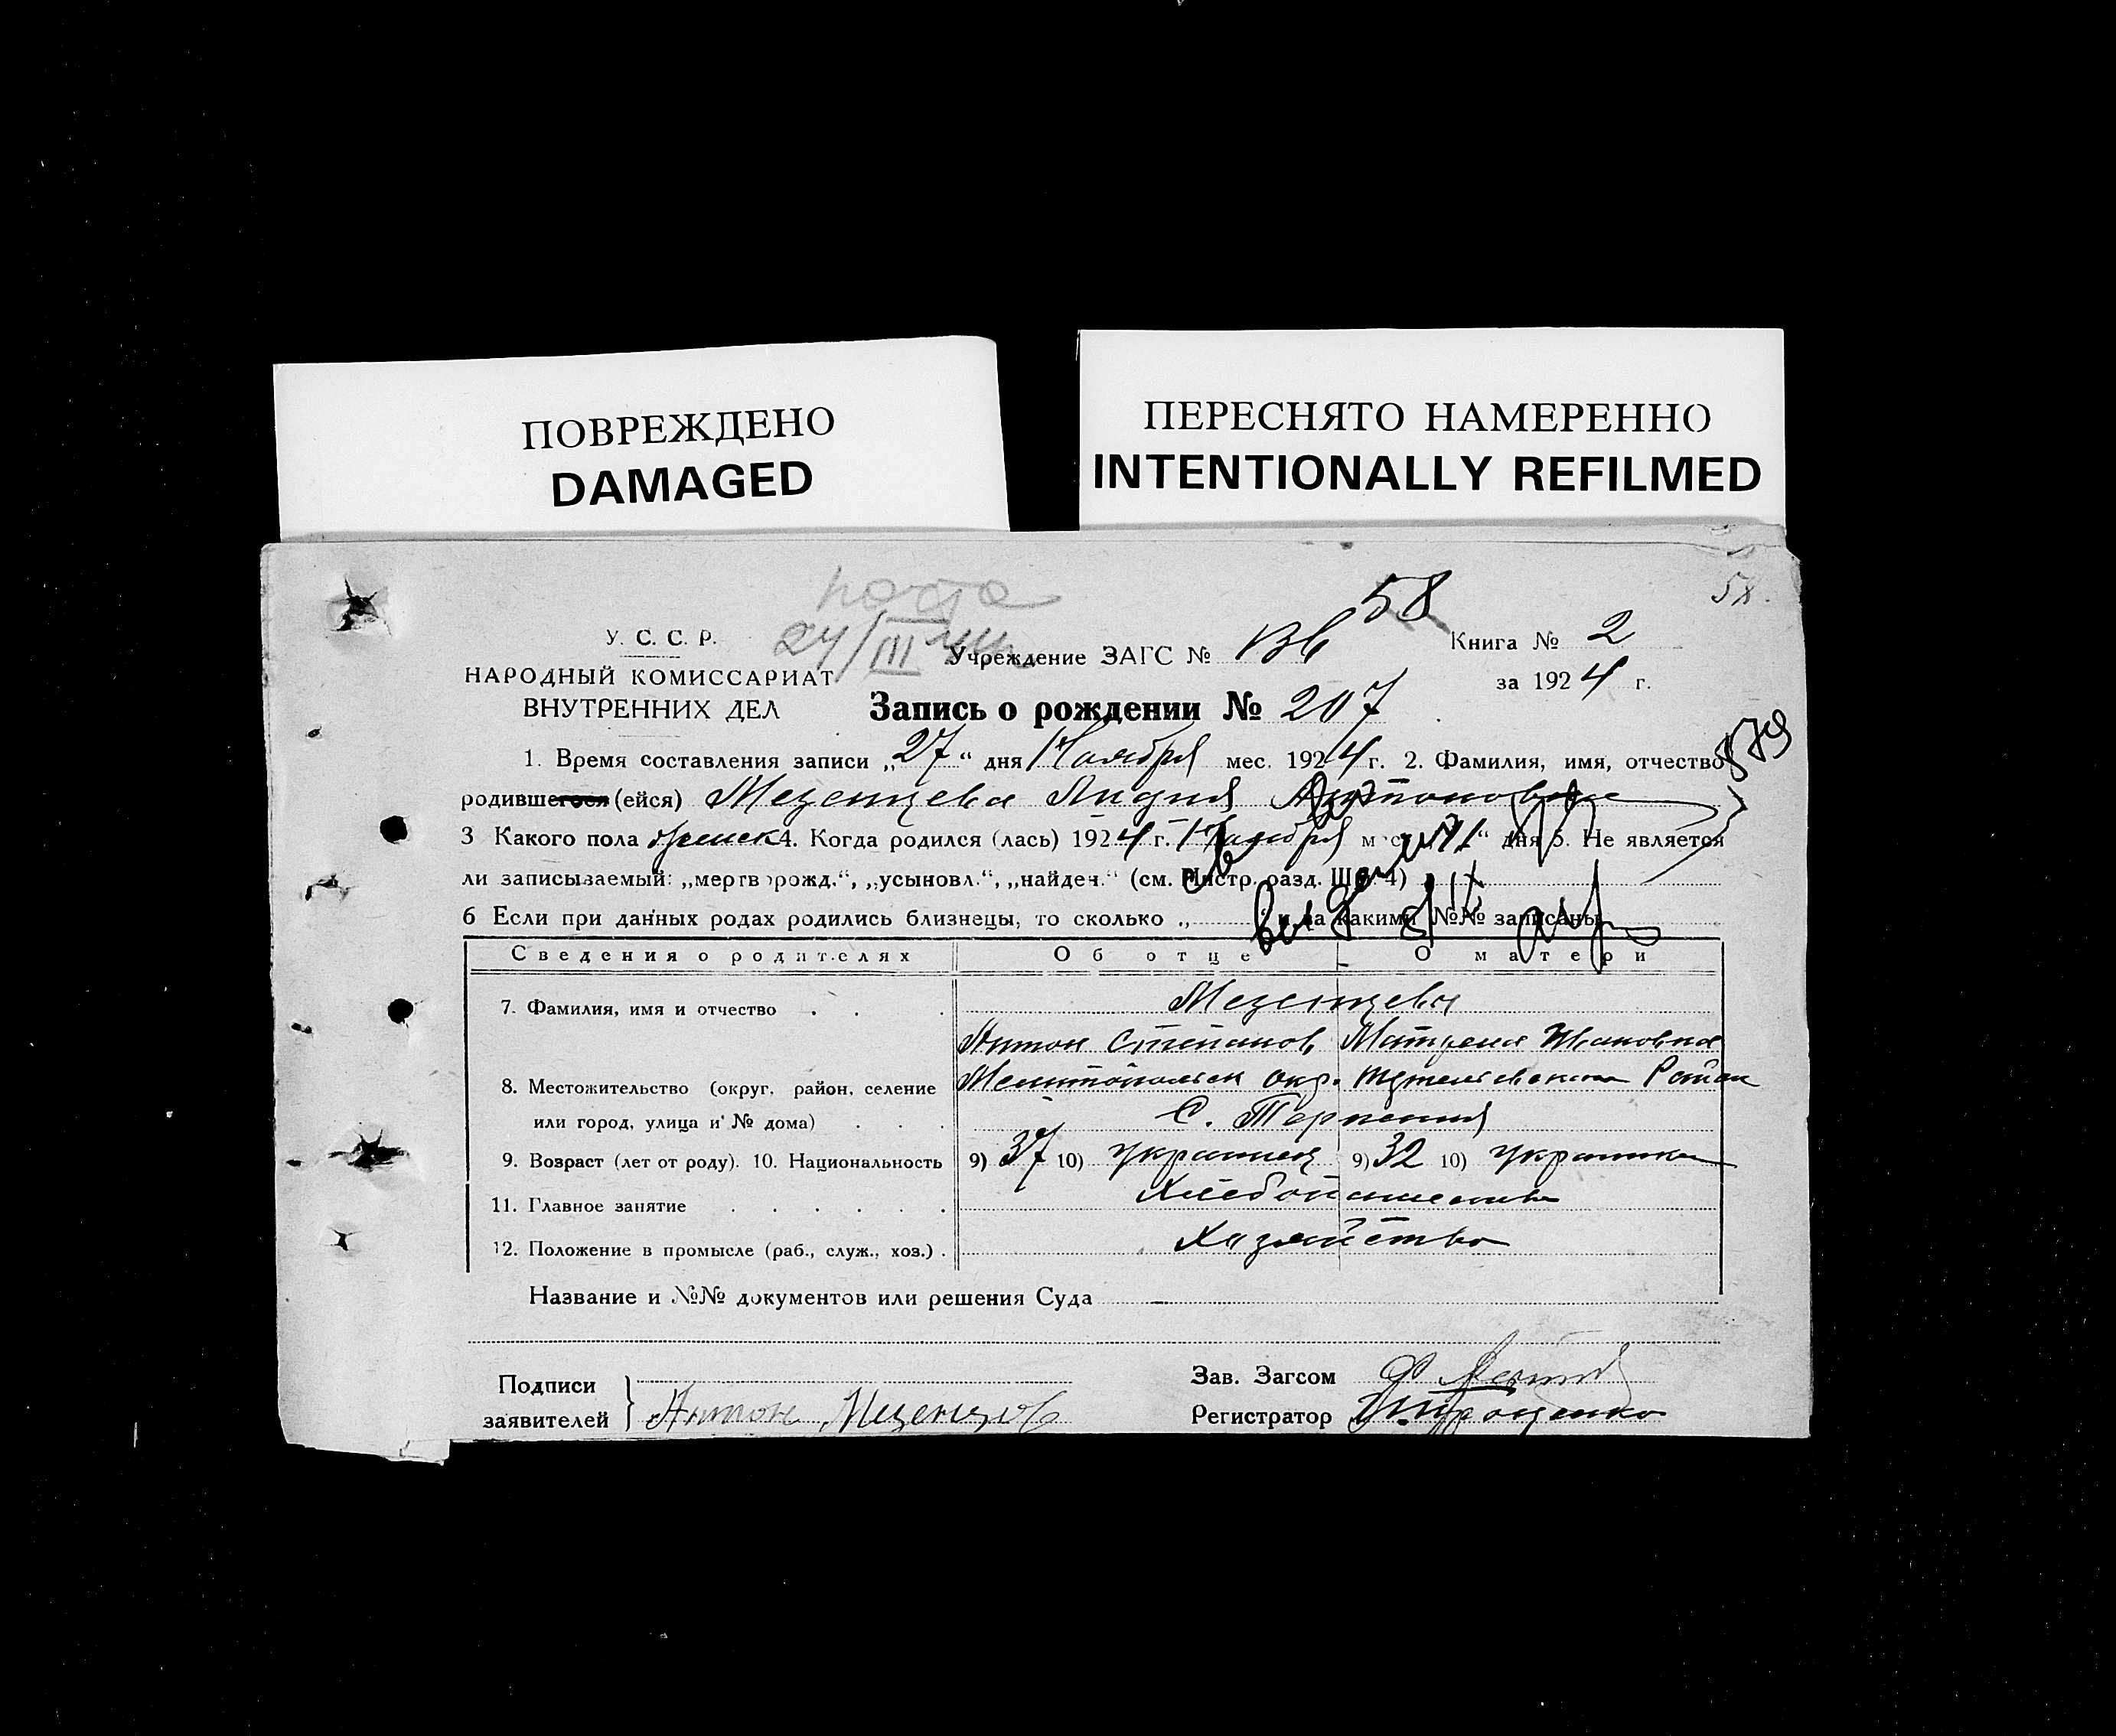 ПОВРЕЖДЕНО
DAMAGED
ПЕРЕСНЯТО НАМЕРЕННО
INTENTIONALLY REFILMED
58
58.
24/III
У. С. С. Р.
НАРОДНЫЙ КОМИССАРИАТ
ВНУТРЕННИХ ДЕЛ
Учреждение ЗАГС №
Книга № 2
за 1924 г.
Запись о рождении № 207
879
1. Время составления записи „27“ дня Ноября мес. 1924 г. 2. Фамилия, имя, отчество
родившегося (ейся) Мезенцева Лидия Антоновна
3 Какого пола женск 4. Когда родился (лась) 1924 г. Ноября мес. „11“ дня 5. Не является
ли записываемый: „мертворожд.“, „усыновл.“, „найден.“ (см. Инстр. разд. III п. 4)
6 Если при данных родах родились близнецы, то сколько „ “ и за какими №№ записаны
Сведения о родителях Об отце О матери
7. Фамилия, имя и отчество Мезенцевы
Антон Степанов Матрена Ивановна
8. Местожительство (округ, район, селение Мелитопольск окр. Район
или город, улица и № дома) С. Терпения
9. Возраст (лет от роду). 10. Национальность 9) 37 10) украинец 9) 32 10) украинка
11. Главное занятие Хлебопашество
12. Положение в промысле (раб., служ., хоз.) Хазяйство
Название и №№ документов или решения Суда
Подписи
заявителей Антон Мезенцов
Зав. Загсом
Регистратор